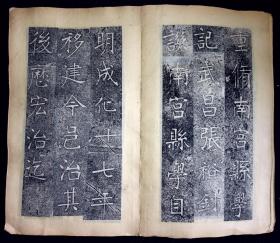 重脩南宮縣學
記武昌張裕釗
譔南宮縣學自
明成化十七年
移建今邑治其
後歷宏治迄